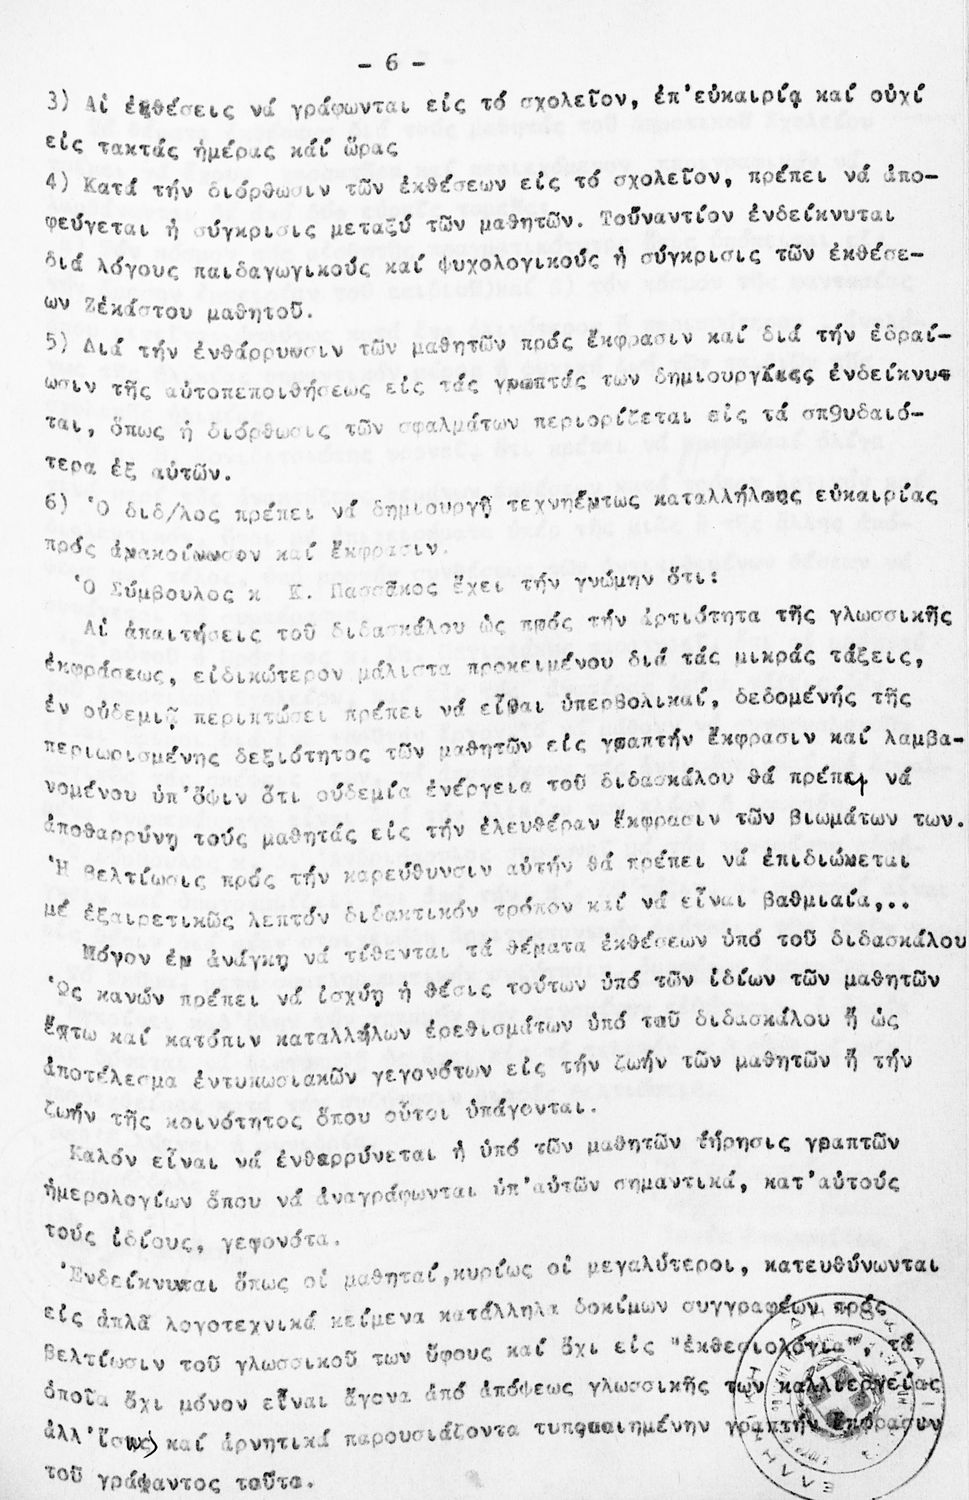 - 6 -
3) Αἱ ἐκθέσεις νά γράφωνται εἰς τό σχολεῖον, ἐπ'εὐκαιρίᾳ καί οὐχί
εἰς τακτάς ἡμέρας κάί ὥρας
4) Κατά τήν διόρθωσιν τῶν ἐκθέσεων εἰς τό σχολεῖον, πρέπει νά ἀπο-
φεύγεται ἡ σύγκρισις μεταξύ τῶν μαθητῶν. Τοὔναντίον ἐνδείκνυται
διά λόγους παιδαγωγικούς καί ψυχολογικούς ἡ σύγκρισις τῶν ἐκθέσε-
ων Ζἑκάστου μαθητοῦ.
5) Διά τήν ἐνθάρρυνσιν τῶν μαθητῶν πρός ἔκφρασιν καί διά τήν ἑδραί-
ωσιν τῆς αὐτοπεποιθήσεως εἰς τάς γραπτάς των δημιουργίας ἐνδείκνυτ
ται, ὅπως ἡ διόρθωσις τῶν σφαλμάτων περιορίζεται εἰς τά σπ9υδαιό-
τερα ἐξ αὐτῶν.
6) Ὁ διδ/λος πρέπει νά δημιουργῇ τεχνηέντως καταλλήλους εὐκαιρίας
πρός ἀνακοίνωσον καί ἔκφρασιν.
Ὁ Σύμβουλος κ Κ. Πασσᾶκος ἔχει τήν γνώμην ὅτι:
Αἱ ἀπαιτήσεις τοῦ διδασκάλου ὡς πρός τήν ἀρτιότητα τῆς γλωσσικῆς
ἐκφράσεως, εἰδικώτερον μάλιστα προκειμένου διά τάς μικράς τάξεις,
ἐν οὐδεμιᾷ περιπτώσει πρέπει νά εἶθαι ὑπερβολικαί, δεδομένής τῆς
περιωρισμένης δεξιότητος τῶν μαθητῶν εἰς γραπτήν ἔκφρασιν καί λαμβα-
νομένου ὑπ'ὄψιν ὅτι οὐδεμία ἐνέργεια τοῦ διδασκάλου θά πρέπει νά
ἀποθαρρύνῃ τούς μαθητάς εἰς τήν ἐλευθέραν ἔκφρασιν τῶν βιωμάτων των.
Ἡ βελτίωσις πρός τήν καρεύθυνσιν αὐτήν θά πρέπει νά ἐπιδιώκεται
μέ ἐξαιρετικῶς λεπτόν διδακτικόν τρόπον καί νά εἶναι βαθμιαία,..
Μόνον ἐν ἀνάγκῃ νά τίθενται τά θέματα ἐκθέσεων ὑπό τοῦ διδασκάλου
Ὡς κανών πρέπει νά ἰσχύῃ ἡ θέσις τούτων ὑπό τῶν ἰδίων τῶν μαθητῶν
ἔστω καί κατόπιν καταλλήλων ἐρεθισμάτων ὑπό τοῦ διδασκάλου ἤ ὡς
ἀποτέλεσμα ἐντυπωσιακῶν γεγονότων εἰς τήν ζωήν τῶν μαθητῶν ἤ τήν
ζωήν τῆς κοινότητος ὅπου οὗτοι ὑπάγονται.
Καλόν εἶναι νά ἐνθαρρύνεται ἡ ὑπό τῶν μαθητῶν τήρησις γραπτῶν
ἡμερολογίων ὅπου νά ἀναγράφωνται ὑπ'αὐτῶν σημαντικά, κατ'αὐτούς
τούς ἰδίους, γεφονότα.
Ἐνδείκνυται ὅπως οἱ μαθηταί, κυρίως οἱ μεγαλύτεροι, κατευθύνωνται
εἰς ἁπλᾶ λογοτεχνικά κείμενα κατάλληλα δοκίμων συγγραφέων πρός
βελτίωσιν τοῦ γλωσσικοῦ των ὕφους καί ὄχι εἰς "ἐκθεσιολόγια", τά
ὁποῖα ὄχι μόνον εἶναι ἄγονα ἀπό ἀπόψεως γλωσσικῆς των καλλιεργείας
ἀλλ'ἴσως καί ἀρνητικά παρουσιάζοντα τυποποιημένην γραπτήν ἔκφρασυν
τοῦ γράφαντος ταῦτα.